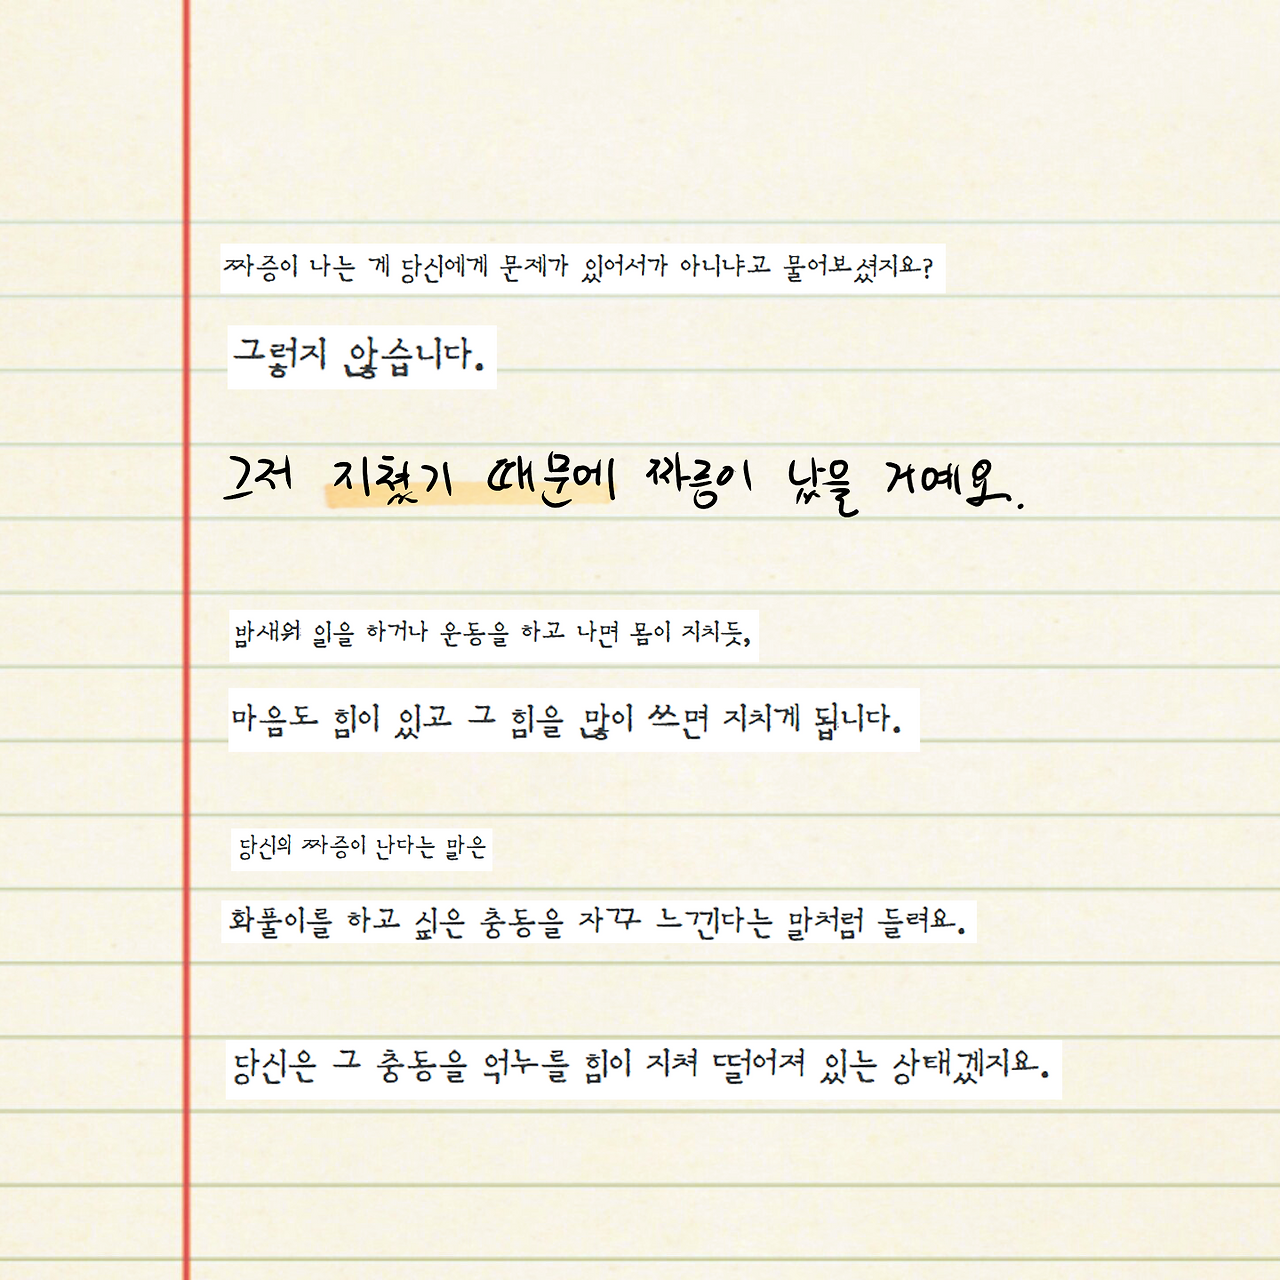 짜증이 나는 게 당신에게 문제가 있어서가 아니냐고 물어보셨지요?
그렇지 않습니다.
그저 지쳤기 때문에 짜증이 났을 거예요.
밤새워 일을 하거나 운동을 하고 나면 몸이 지치듯,
마음도 힘이 있고 그 힘을 많이 쓰면 지치게 됩니다.
당신의 짜증이 난다는 말은
화풀이를 하고 싶은 충동을 자꾸 느낀다는 말처럼 들려요.
당신은 그 충동을 억누를 힘이 지쳐 떨어져 있는 상태겠지요.